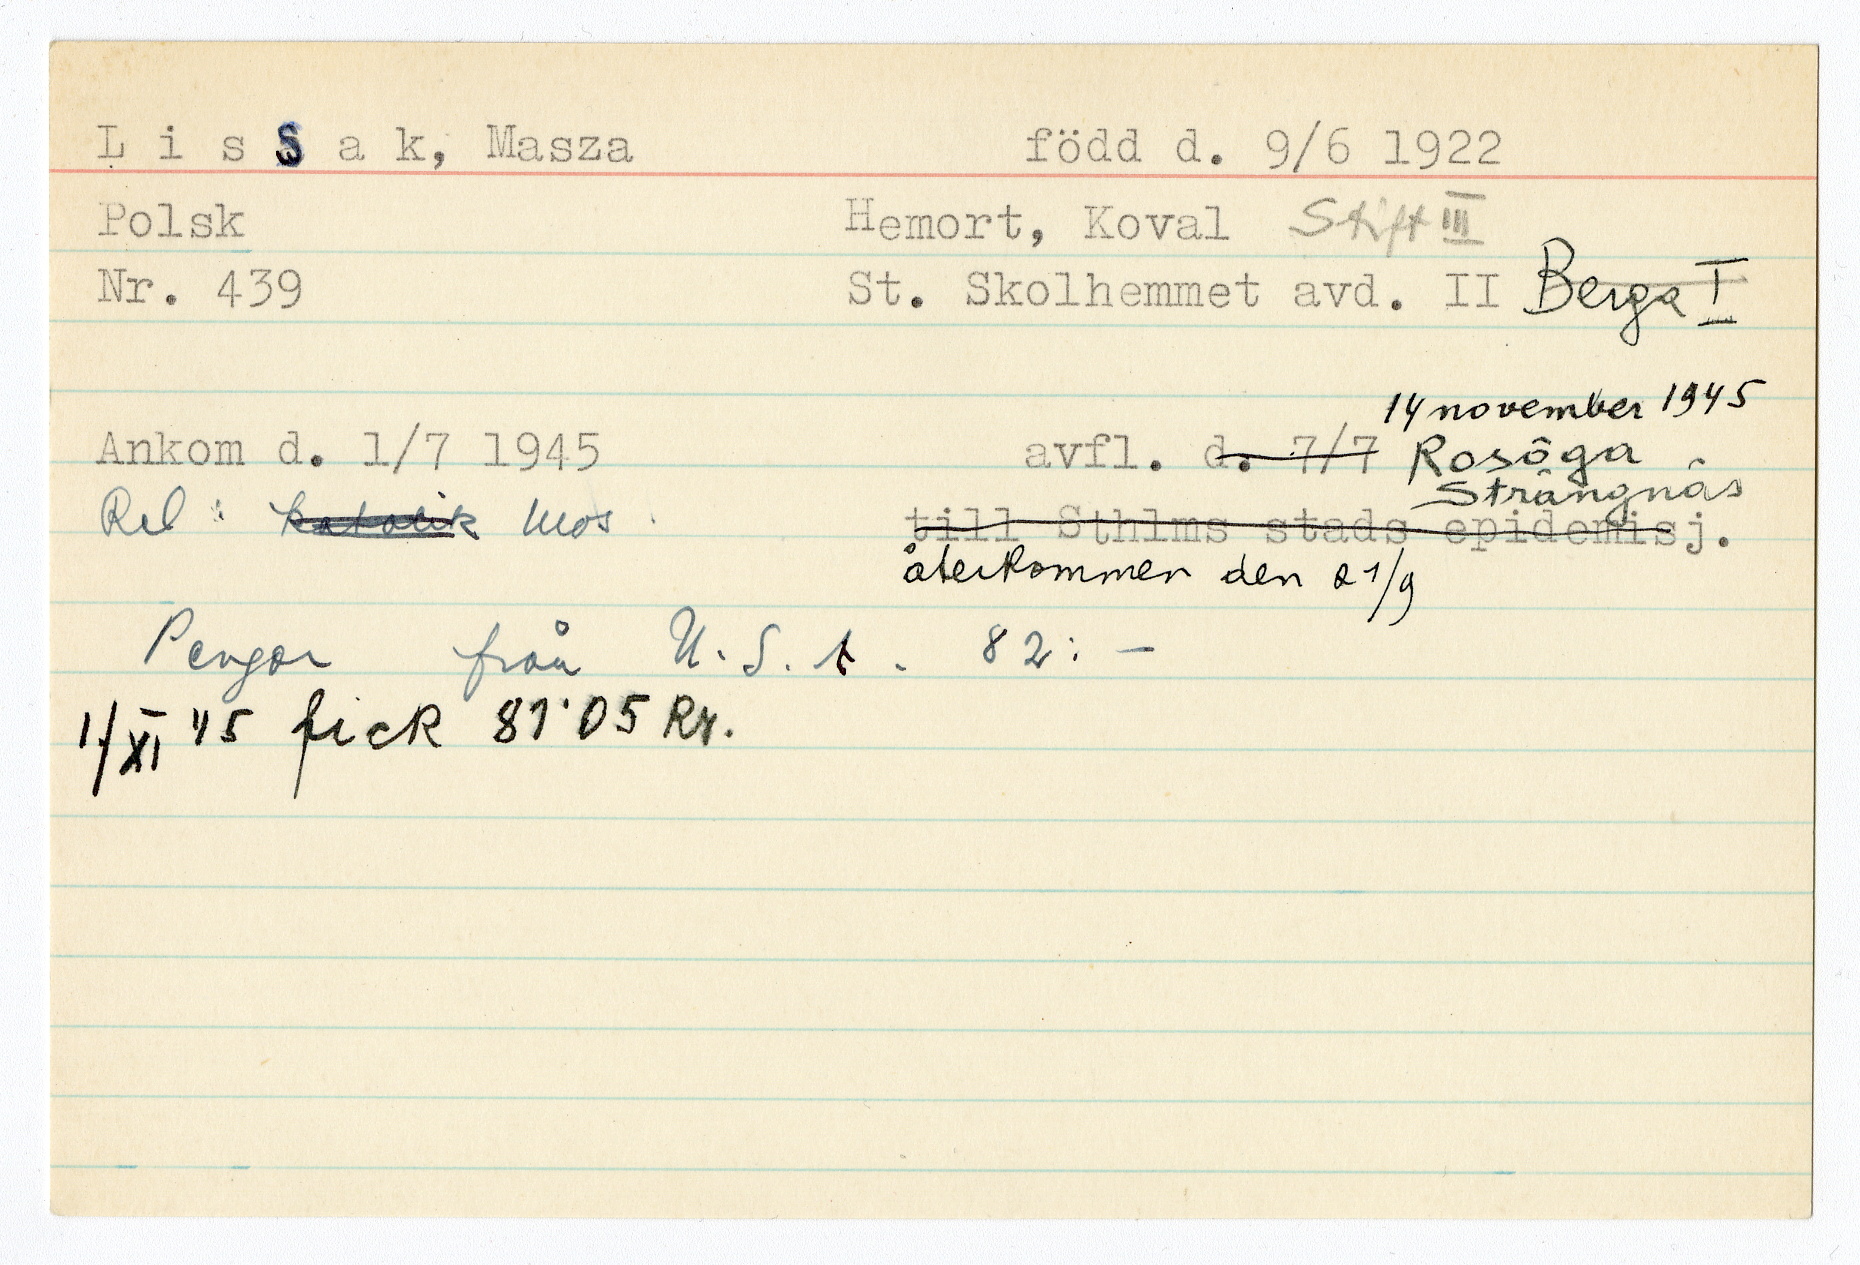 L i s s a k, Masza född d. 9/6 1922
Polsk Hemort, Koval Stift III
Nr. 439 St. Skolhemmet avd. II Berga I
14 november 1945
Ankom d. 1/7 1945 avfl. d. 7/7 Rosöga
Strängnäs
Rel: katolik Mos. till Sthlms stads epidemisj.
återkommen den 21/9
Pengar från U.S.A. 82:-
1/XI 45 fick 81'05 Kr.